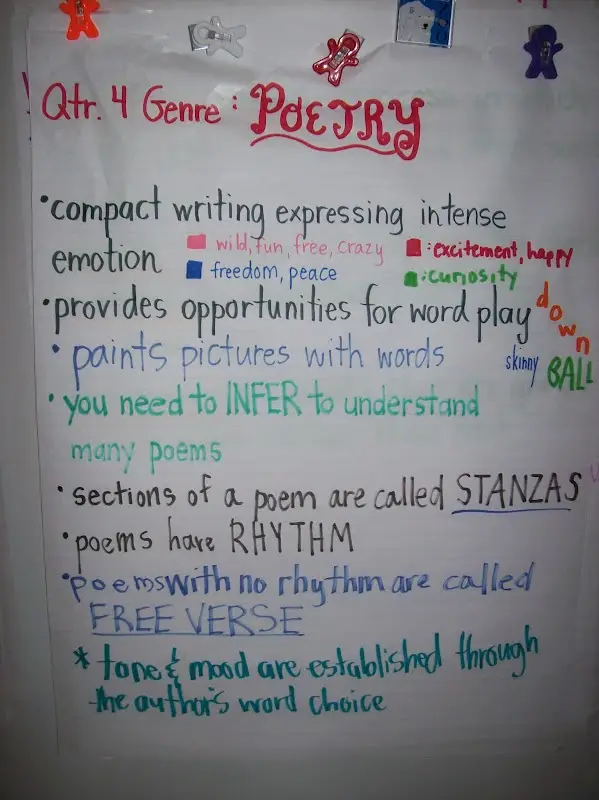 Qtr. 4 Genre: POETRY
•compact writing expressing intense
emotion
wild, fun, free, crazy
:excitement, happy
freedom, peace
:curiosity
•provides opportunities for word play
down
•paints pictures with words
skinny BALL
•you need to INFER to understand
many poems
•sections of a poem are called STANZAS
•poems have RHYTHM
•poems with no rhythm are called
FREE VERSE
* tone & mood are established through
the author's word choice